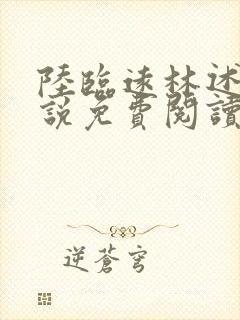 陸臨遠林述
說免費閱讀
逆蒼穹